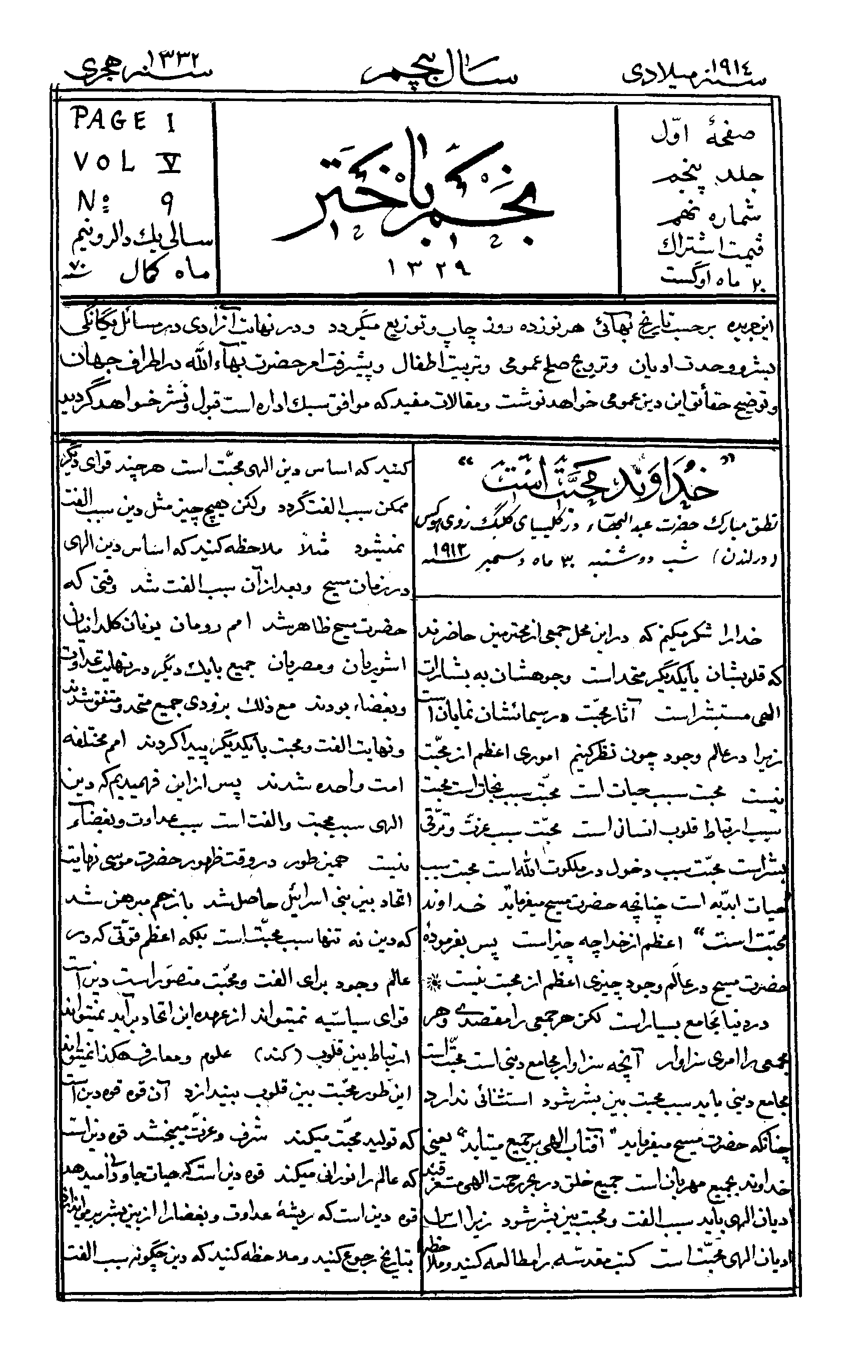 سنه میلادی ۱۹۱٤
سال پنجم
سنه هجری ۱۳۳۲
صفحهٔ اوّل
جلد پنجم
شماره نهم
قیمت اشتراک
۲۰ ماه اوگست
نجم باختر
۱۳۲۹
PAGE 1
VOL V
Nº 9
سالی یک دالر و نیم
ماه کمال سنه ۷۰
این جریده بر حسب تاریخ بهائی هر نوزده روز چاپ و توزیع میگردد و در نهایت آزادی در مسائل یگانگی
بشر و وحدت ادیان و ترویج صلح عمومی و تربیت اطفال و پیشرفت امر حضرت بهآءالله در اطراف جهان
و توضیح حقائق این دین عمومی خواهد نوشت و مقالات مفید که موافق سبک اداره است قبول و نشر خواهد گردید
”خداوند محبّت است“
نطق مبارک حضرت عبدالبهآء در کلیسای کلبک
(در لندن) شب دوشنبه ۳۰ ماه دسمبر سنه ۱۹۱۲
خدا را شکر میکنم که در این محل جمعی از محترمین حاضرند
که قلوبشان با یکدیگر متحد است وجوهشان به بشارات
الهی مستبشر است آثار محبّت در سیمائشان نمایان است
زیرا در عالم وجود چون نظر کنیم اموری اعظم از محبّت
نیست محبت سبب حیات است محبّت سبب نجات است محبت
سبب ارتباط قلوب انسانی است محبّت سبب عزّت و ترقّی
بشر است محبّت سبب دخول در ملکوت الله است محبت سبب
حیات ابدیّه است چنانچه حضرت مسیح میفرماید خداوند
محبّت است“ اعظم از خدا چه چیز است پس بفرمودهٔ
حضرت مسیح در عالم وجود چیزی اعظم از محبت نیست *
در دنیا مجامع بسیار است لکن هر جمعی را مقصدی و هر
مجمعی را امری سزاوار آنچه سزاوار مجامع دینی است محبّت است
مجامع دینی باید سبب محبت بین بشر شود استثنائی ندارد
چنانکه حضرت مسیح میفرماید "آفتاب الهی بر جمیع میتابد" یعنی
خداوند بجمیع مهربان است جمیع خلق در بحر رحمت الهی مستغرقند
ادیان الهی باید سبب الفت و محبت بین بشر شود زیرا اساس
ادیان الهی محبّت است کتب مقدسه را مطالعه کنید و ملاحظه
کنید که اساس دین الهی محبّت است هر چند قوای دیگر
ممکن سبب الفت گردد ولکن هیچ چیز مثل دین سبب الفت
نمیشود مثلاً ملاحظه کنید که اساس دین الهی
در زمان مسیح و بعد از آن سبب الفت شد وقتی که
حضرت مسیح ظاهر شد امم رومان یونان کلدانیان
اشوریان و مصریان جمیع با یک دیگر در نهایت عداوت
و بغضاء بودند مع ذلک بزودی جمیع متحد و متفق شدند
و نهایت الفت و محبت با یکدیگر پیدا کردند امم مختلفه
امت واحده شدند پس از این فهمیدیم که دین
الهی سبب محبت والفت است سبب عداوت و بغضاء
نیست همین طور در وقت ظهور حضرت موسی نهایت
اتحاد بین بنی اسرائیل حاصل شد باز هم مبرهن شد
که دین نه تنها سبب محبّت است بلکه اعظم قوّتی که در
عالم وجود برای الفت و محبّت متصوّر است دین است
قوای سیاسیّه نمیتواند از عهده این اتحاد برآید نمیتواند
ارتباط بین قلوب (کند) علوم و معارف هکذا نمیتواند
این طور محبّت بین قلوب بیندازد آن قوه قوه دین است
که تولید محبّت میکند شرف و عزّت میبخشد قوه دین است
که عالم را نورانی میکند قوه دین است که حیات جاودانی میدهد
قوه دین است که ریشهٔ عداوت و بغضا را از بین بشر براندازد
بتاریخ رجوع کنید و ملاحظه کنید که دین چگونه سبب الفت